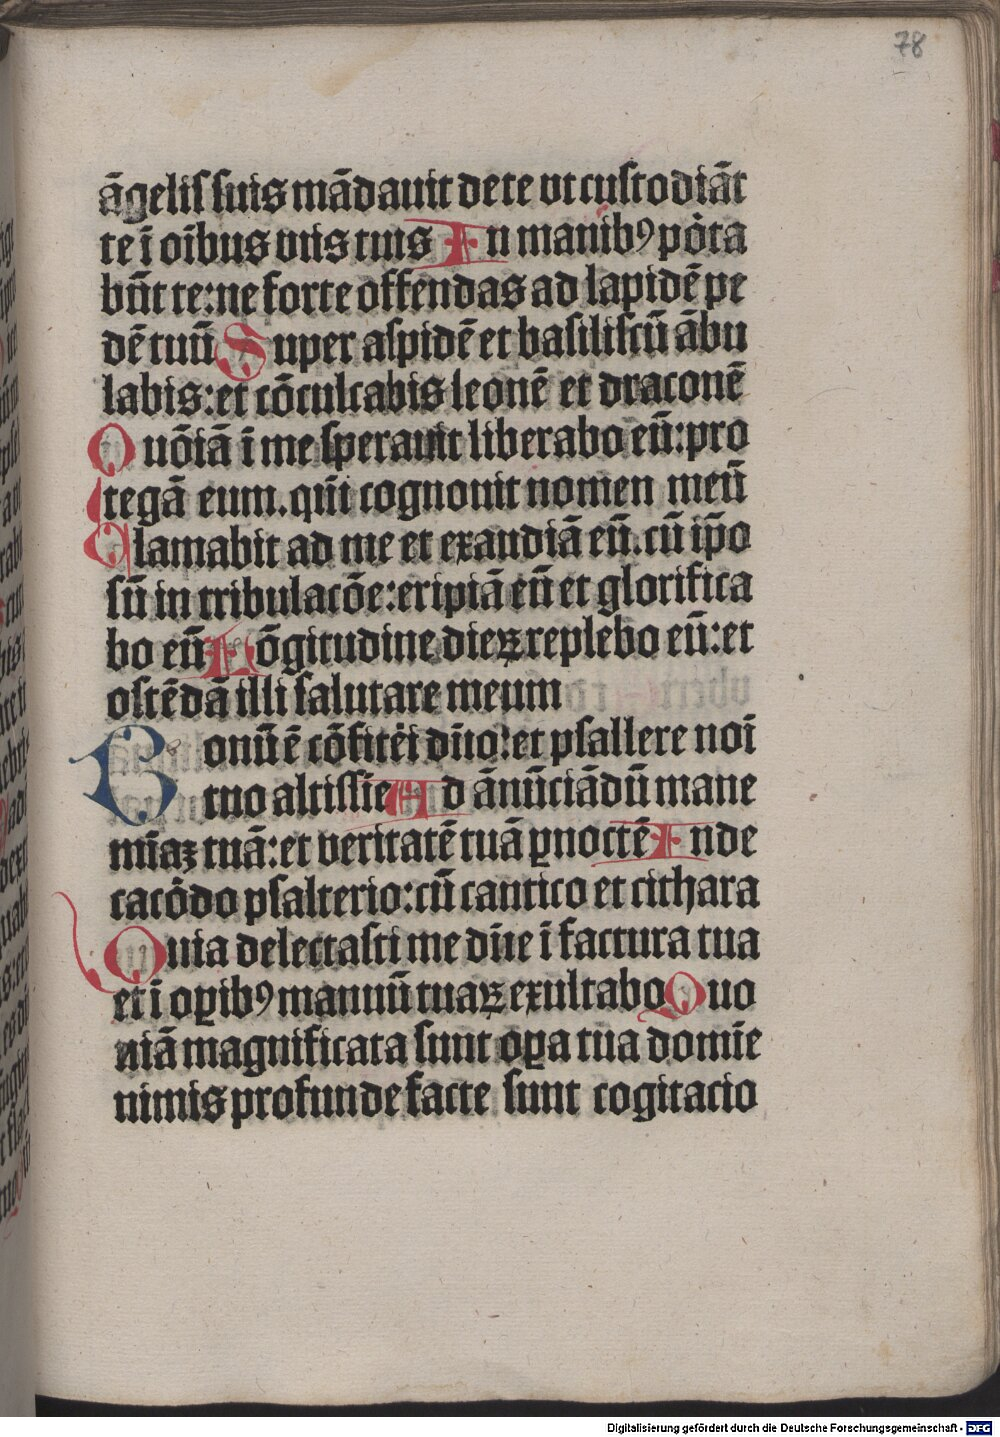 78
āgelis suis mādauit de te vt custodiāt
te ī oībus vīis tuis In manibꝰ porta
būt te: ne forte offendas ad lapidē pe
dē tuū Super aspidē et basiliscū ābu
labis: et cōculcabis leonē et draconē
Quōiā ī me sperauit liberabo eū: pro
tegā eum. qm̄ cognouit nomen meū
Clamabit ad me et exaudiā eū. cū ip̄o
sū in tribulacōe: eripiā eū et glorifica
bo eū Lōgitudine dieꝝ replebo eū: et
ostēdā illi salutare meum
Bonū ē cōfiteri dn̄o: et psallere noī
tuo altissie Ad ānūciādū mane
mīaꝫ tuā: et veritatē tuā ꝑ noctē In de
cacordo psalterio: cū cantico et cithara
Quia delectasti me dn̄e ī factura tua
et ī oꝑibꝰ manuū tuaꝝ exultabo Quo
niā magnificata sunt oꝑa tua domīe
nimis profunde facte sunt cogitacio
Digitalisierung gefördert durch die Deutsche Forschungsgemeinschaft - DFG